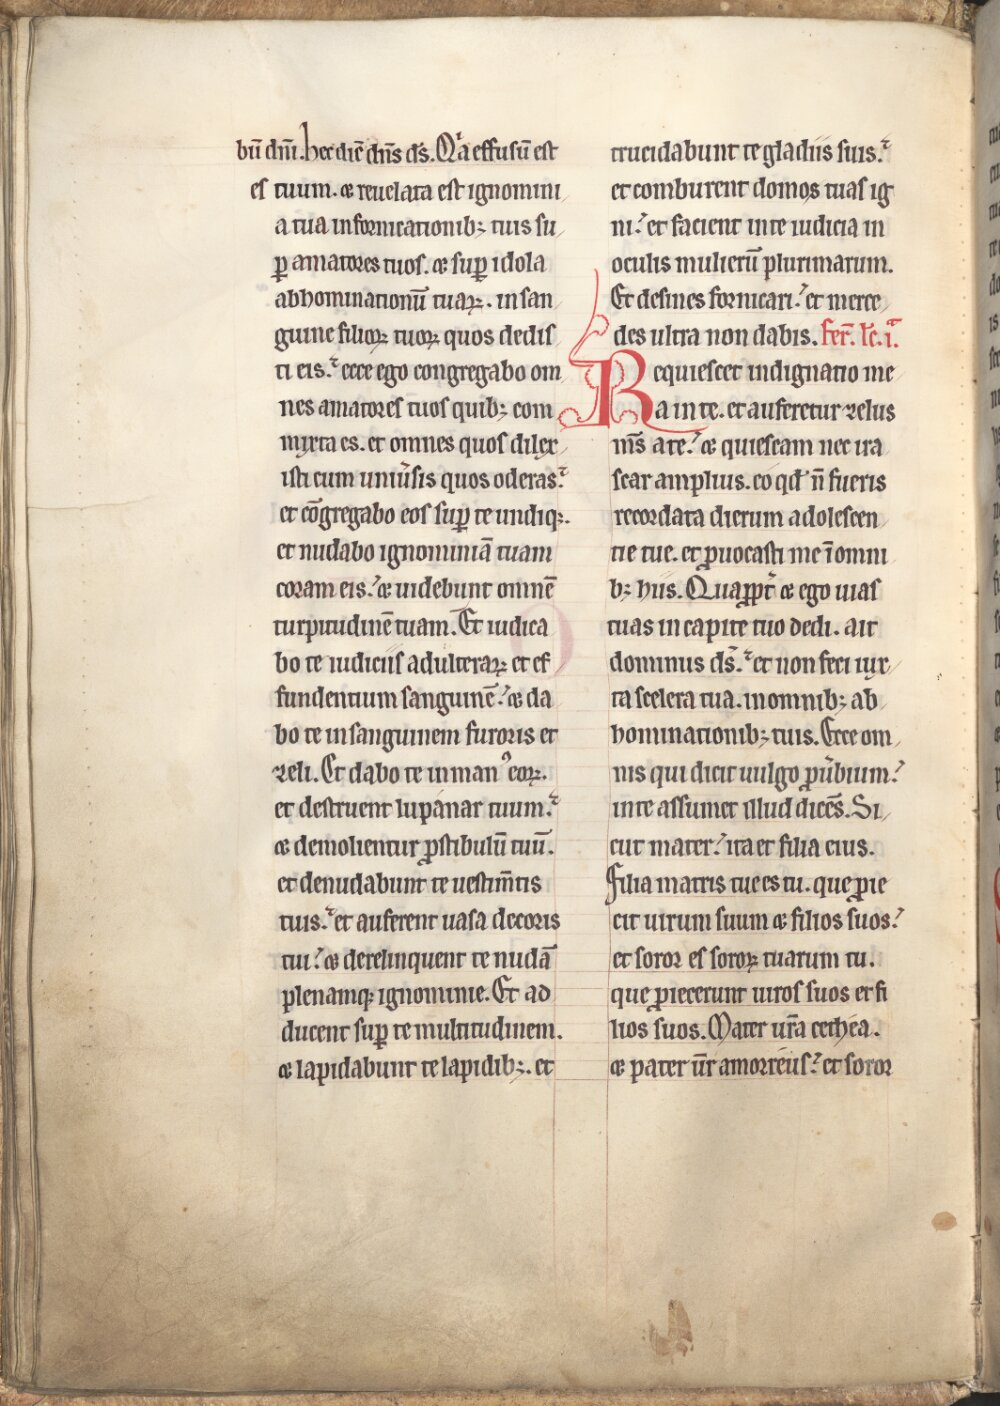 bū dn̄i. hec diē dn̄s ds̄. Qͥa effusū est
es tuum. ⁊ reuelata est ignomini
a tua in fornicationibꝫ tuis su
ꝑ amatores tuos. ⁊ suꝑ idola
abhominationū tuaꝝ. in san
guine filioꝝ tuoꝝ quos dedis
ti eis. ecce ego congregabo om
nes amatores tuos quibꝫ com
myxta es. et omnes quos dilex
isti cum uniūsis quos oderas.
et cōgregabo eos suꝑ te undiqꝫ.
et nudabo ignominiā tuam
coram eis. ⁊ uidebunt omnē
turpitudinē tuam. Et iudica
bo te iudiciis adulteraꝝ et ef
fundentium sanguinē. ⁊ da
bo te in sanguinem furoris et
zeli. Et dabo te in man⁹ eoꝝ.
et destruent lupanar tuum.
⁊ demolientur ꝓstibulū tuū.
et denudabunt te uestim̄tis
tuis. et auferent uasa decoris
tui. ⁊ derelinquent te nudā
plenamqꝫ ignominie. Et ad
ducent suꝑ te multitudinem.
⁊ lapidabunt te lapidibꝫ. et
trucidabunt te gladiis suis.
et comburent domos tuas ig
ni. et facient in te iudicia in
oculis mulierū plurimarum.
Et desines fornicari. et merce
des ultra non dabis. fer̄. lc̄. i.ᵃ
Requiescet indignatio me
a in te. et auferetur zelus
m̄s a te. ⁊ quiescam nec ira
scar amplius. eo qđ n̄ fueris
recordata dierum adolescen
tie tue. et ꝓuocasti me ī omni
bꝫ hiis. Quaꝓpt̄ ⁊ ego uias
tuas in capite tuo dedi. ait
dominus ds̄. et non feci iux
ta scelera tua. in omnibꝫ ab
hominationibꝫ tuis. Ecce om
nis qui dicit uulgo ꝓūbium.
in te assumet illud dicēs. Si
cut mater. ita et filia eius.
Filia matris tue es tu. que ꝓie
cit uirum suum ⁊ filios suos.
et soror es soroꝝ tuarum tu.
que ꝓiecerunt uiros suos et fi
lios suos. Mater ur̄a cethea.
⁊ pater ūr amorreus. et soror